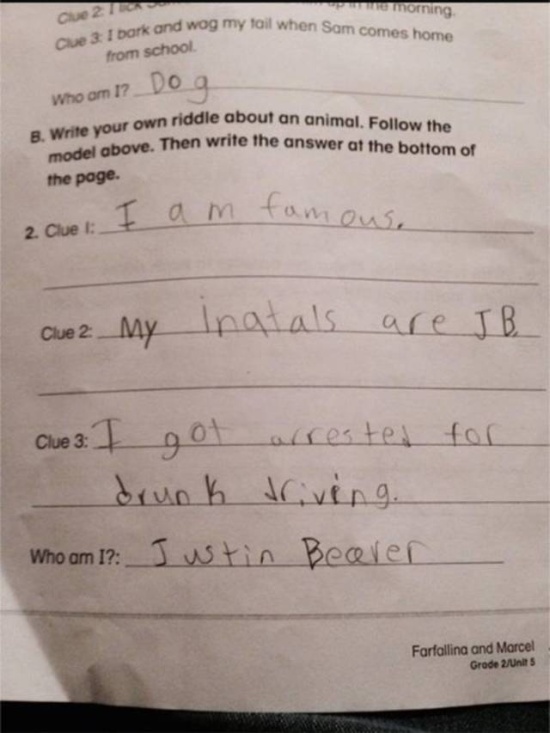 Clue 2: I lick
in the morning.
Clue 3: I bark and wag my tail when Sam comes home
from school.
Who am I? Dog
B. Write your own riddle about an animal. Follow the
model above. Then write the answer at the bottom of
the page.
2. Clue 1: I am famous.
Clue 2: My Inatals are JB
Clue 3: I got arrested for
drunk driving.
Who am I?: Justin Beaver
Farfallina and Marcel
Grade 2/Unit 5